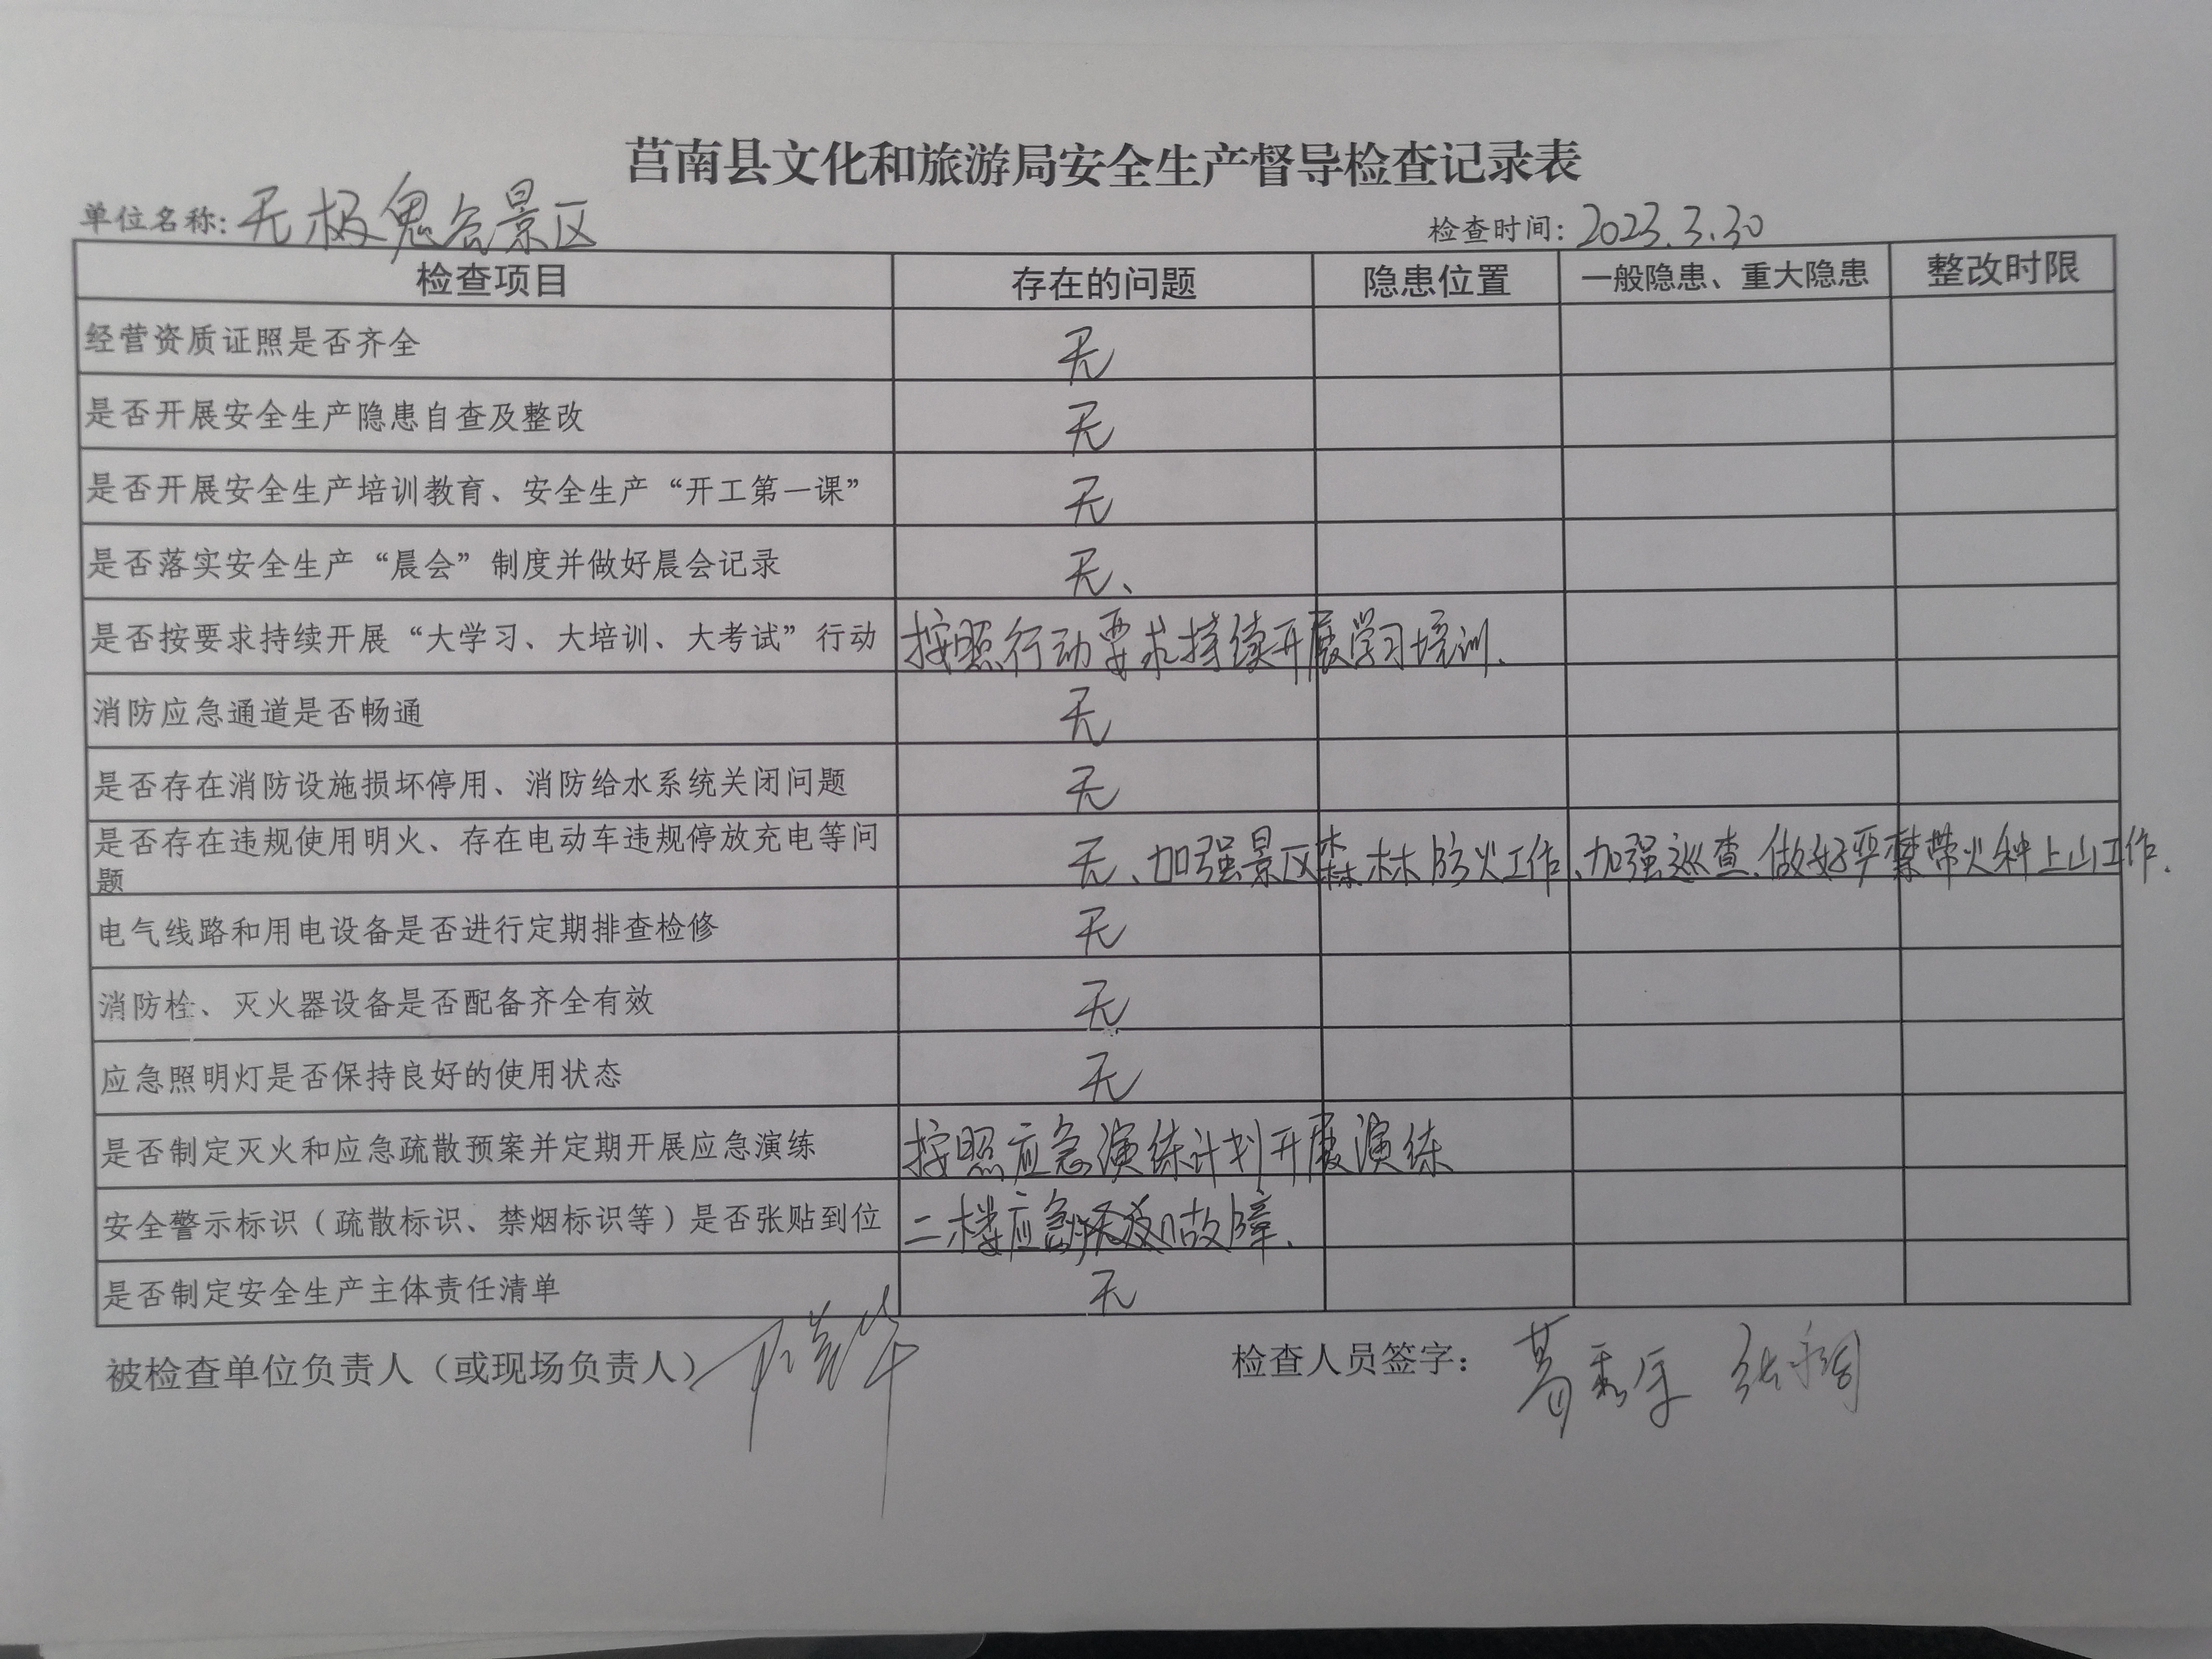 莒南县文化和旅游局安全生产督导检查记录表
单位名称：无极鬼谷景区 检查时间：2023.3.30
检查项目 存在的问题 隐患位置 一般隐患、重大隐患 整改时限
经营资质证照是否齐全 无
是否开展安全生产隐患自查及整改 无
是否开展安全生产培训教育、安全生产“开工第一课” 无
是否落实安全生产“晨会”制度并做好晨会记录 无、
是否按要求持续开展“大学习、大培训、大考试”行动 按照行动要求持续开展学习培训.
消防应急通道是否畅通 无
是否存在消防设施损坏停用、消防给水系统关闭问题 无
是否存在违规使用明火、存在电动车违规停放充电等问 无、加强景区森林防火工作、加强巡查、做好严禁带火种上山工作.
题
电气线路和用电设备是否进行定期排查检修 无
消防栓、灭火器设备是否配备齐全有效 无
应急照明灯是否保持良好的使用状态 无
是否制定灭火和应急疏散预案并定期开展应急演练 按照应急演练计划开展演练
安全警示标识（疏散标识、禁烟标识等）是否张贴到位 二楼应急 故障.
是否制定安全生产主体责任清单 无
被检查单位负责人（或现场负责人） 检查人员签字：